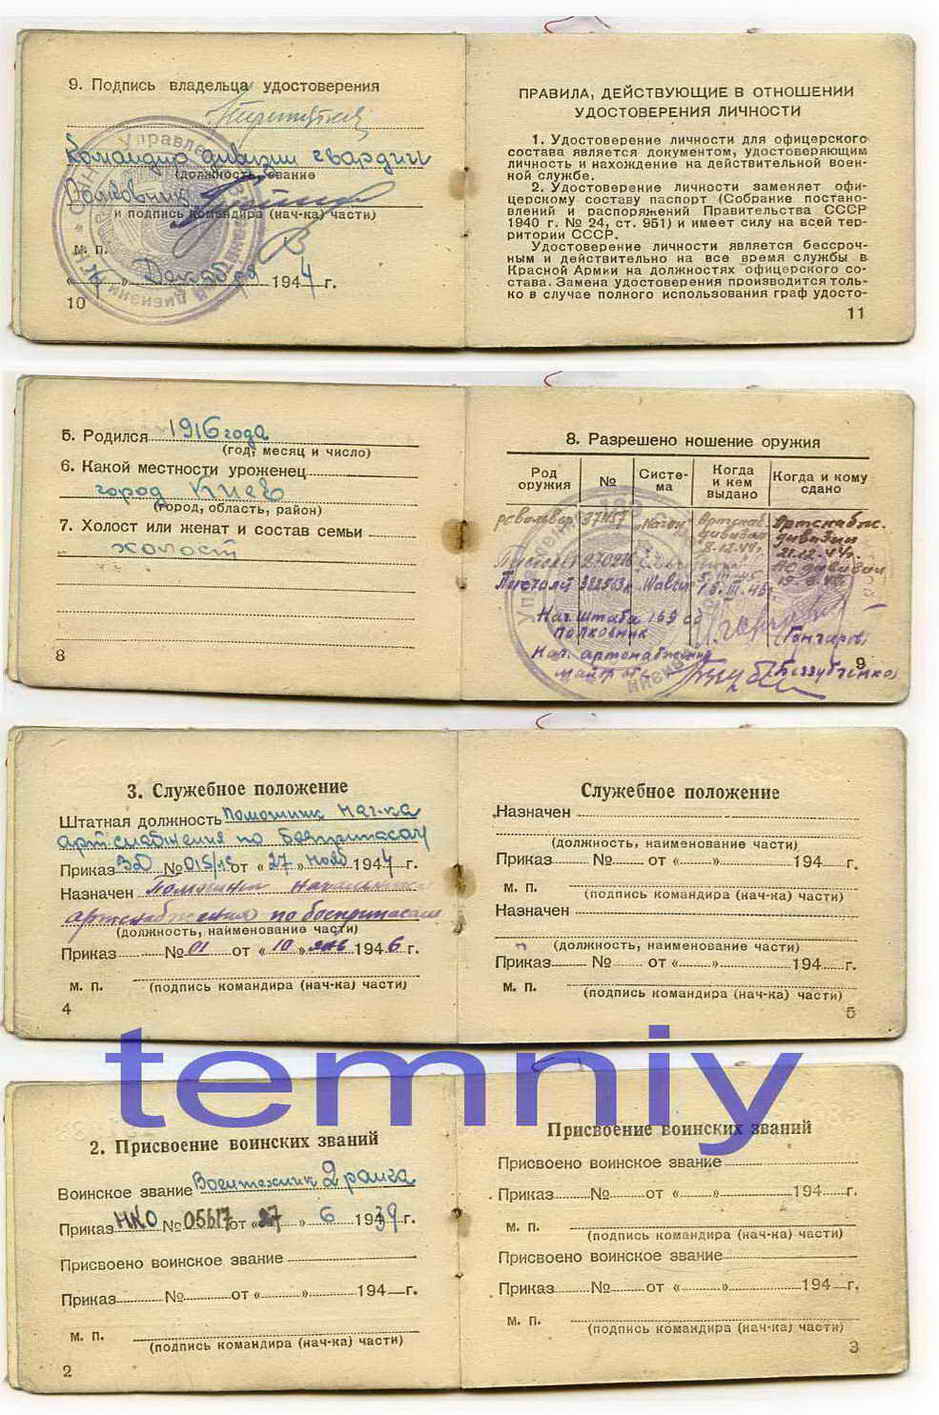 9. Подпись владельца удостоверения
Командир дивизии гвардии
(должность, звание
Полковник
и подпись командира (нач-ка) части)
м. п.
Декабря 1944 г.
10
ПРАВИЛА, ДЕЙСТВУЮЩИЕ В ОТНОШЕНИИ
УДОСТОВЕРЕНИЯ ЛИЧНОСТИ
1. Удостоверение личности для офицерского
состава является документом, удостоверяющим
личность и нахождение на действительной воен-
ной службе.
2. Удостоверение личности заменяет офи-
церскому составу паспорт (Собрание постано-
влений и распоряжений Правительства СССР
1940 г. № 24, ст. 951) и имеет силу на всей тер-
ритории СССР.
Удостоверение личности является бессроч-
ным и действительно на все время службы в
Красной Армии на должностях офицерского со-
става. Замена удостоверения производится толь-
ко в случае полного использования граф удосто-
11
5. Родился 1916 года
(год, месяц и число)
6. Какой местности уроженец
город Киев
(город, область, район)
7. Холост или женат и состав семьи
холост
8
8. Разрешено ношение оружия
Род оружия № Систе-ма Когда и кем выдано Когда и кому сдано
револьвер Наган Артснаб. дивизии 8.12.44г. Артснабж. дивизии 21.12.44г.
Пистолет
Нач. штаба 169 сд
полковник (Гончаров)
Нач. артснабжения
майор (Беззубченко)
9
3. Служебное положение
Штатная должность Помошник нач-ка
арт. снабжения по боеприпасам
Приказ № 015/ от «27» 1944 г.
Назначен Помощник начальника
артснабжения по боеприпасам
(должность, наименование части)
Приказ № 01 от «10» янв 1946 г.
м. п. (подпись командира (нач-ка) части)
4
Служебное положение
Назначен
(должность, наименование части)
Приказ № от « » 194 г.
м. п. (подпись командира (нач-ка) части)
Назначен
(должность, наименование части)
Приказ № от « » 194 г.
м. п. (подпись командира (нач-ка) части)
5
temniy
2. Присвоение воинских званий
Воинское звание Воентехник 2 ранга
Приказ НКО № 05617 от «27» 6 1939 г.
Присвоено воинское звание
Приказ № от « » 194 г.
м. п. (подпись командира (нач-ка) части)
2
Присвоение воинских званий
Присвоено воинское звание
Приказ № от « » 194 г.
м. п. (подпись командира (нач-ка) части)
Присвоено воинское звание
Приказ № от « » 194 г.
м. п. (подпись командира (нач-ка) части)
3